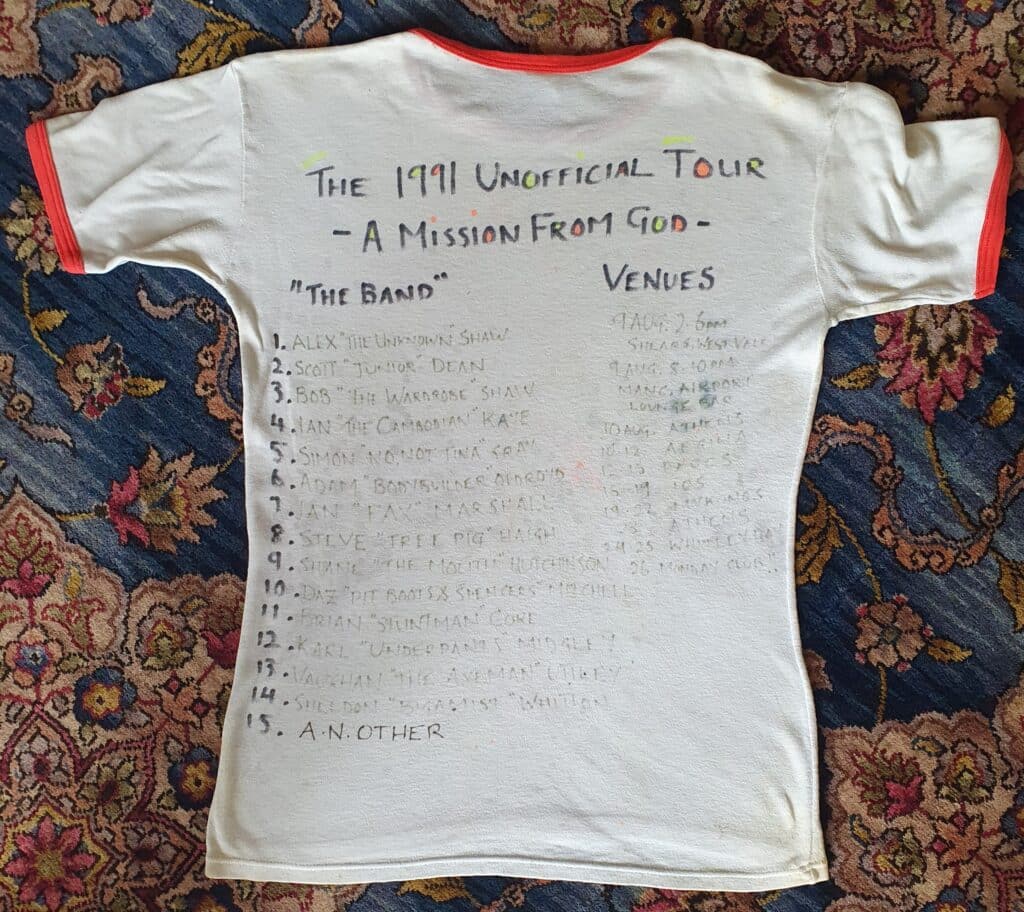 THE 1991 UNOFFICIAL TOUR
- A MISSION FROM GOD -
"THE BAND"
1. ALEX "THE UNKNOWN" SHAW
2. SCOTT "JUNIOR" DEAN
3. BOB "THE WARDROBE" SHAW
4. IAN "THE CAMBODIAN" KAYE
5. SIMON "NO, NOT TINA"
6. ADAM "BODYBUILDER" OLDROYD
7. IAN "FAX" MARSHALL
8. STEVE "TREE PIG" HAIGH
9. SHANE "THE MOUTH" HUTCHINSON
10. DAZ "PIT BOOTS & SPENCERS" MITCHELL
11. BRIAN "STUNTMAN"
12. KARL "UNDERPANTS" MIDGLEY
13. VAUGHAN "THE AXEMAN" UTLEY
14. SHELDON "BIGAMIST" WHITTON
15. A.N. OTHER
VENUES
9 AUG. 2-6pm
SHEARS, WEST VALE
9 AUG. 8-10PM
MANC. AIRPORT
LOUNGE BAR
10 AUG. ATHENS
10-12
IOS
19-22 MYKONOS
ATHENS
24-25
26 MONDAY CLUB